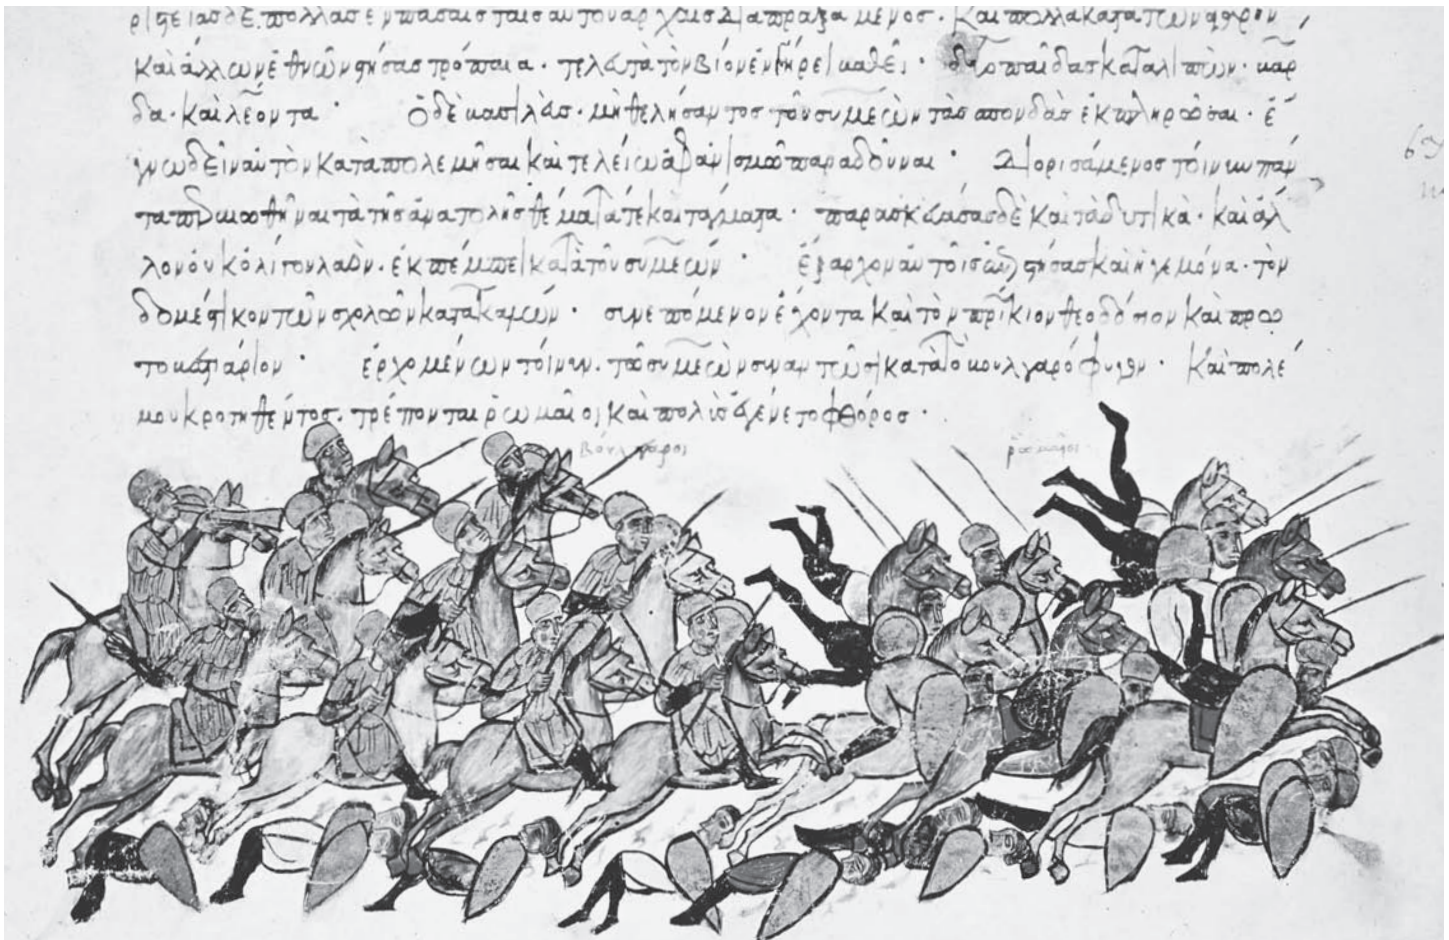 ριστείας δὲ πολλὰς ἐν πάσαις ταῖς αὐτοῦ ἀρχαῖς διαπραξάμενος. καὶ πολλὰ κατὰ τῶν
καὶ ἄλλων ἐθνῶν στήσας τρόπαια· τελευτᾶ τὸν βίον ἐν γήρει βαθεῖ· δύο παῖδας καταλιπών· βάρ
δα· καὶ λέοντα· Ὁ δὲ βασιλεὺς· μὴ θελήσαντος τοῦ συμεὼν τὰς σπονδὰς ἐκπληρῶσαι· ἔ
γνω δεῖν αὐτὸν καταπολεμῆσαι καὶ τελείω ἀφανισμῶ παραδοῦναι· Διορισάμενος τοίνυν πάν
τα περαιωθῆναι τὰ τῆς ἀνατολῆς θέματά τε καὶ τάγματα· παρασκευάσας δὲ καὶ τὰ δυτικὰ· καὶ ἄλ
λον οὐκ ὀλίγον λαὸν· ἐκπέμπει κατὰ τοῦ συμεών· ἔξαρχον αὐτοῖς ἐπιστήσας καὶ ἡγεμόνα· τὸν
δομέστικον τῶν σχολῶν κατακαλών· συνεπόμενον ἔχοντα καὶ τὸν πρίκιον θεοδόσιον καὶ πρω
τοβεστιάριον· ἐρχομένων τοίνυν· τοῦ συμεὼν συναντῶσι κατὰ τὸ βουλγαρόφυγον· καὶ πολέ
μου κροτηθέντος· τρέπονται ῥωμαῖοι καὶ πολὺς ἐγένετο φθόρος·
βούλγαροι
ῥωμαῖοι